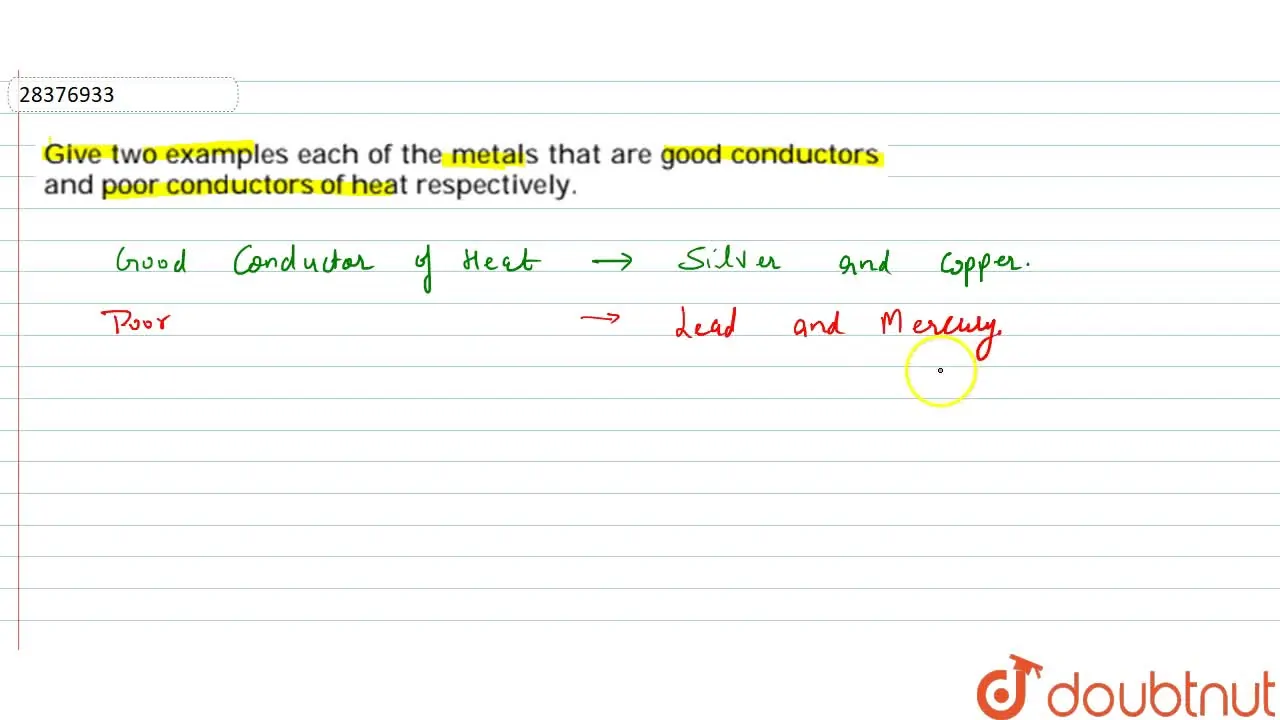 28376933
Give two examples each of the metals that are good conductors
and poor conductors of heat respectively.
Good Conductor of Heat → Silver and Copper.
Poor → Lead and Mercury.
doubtnut